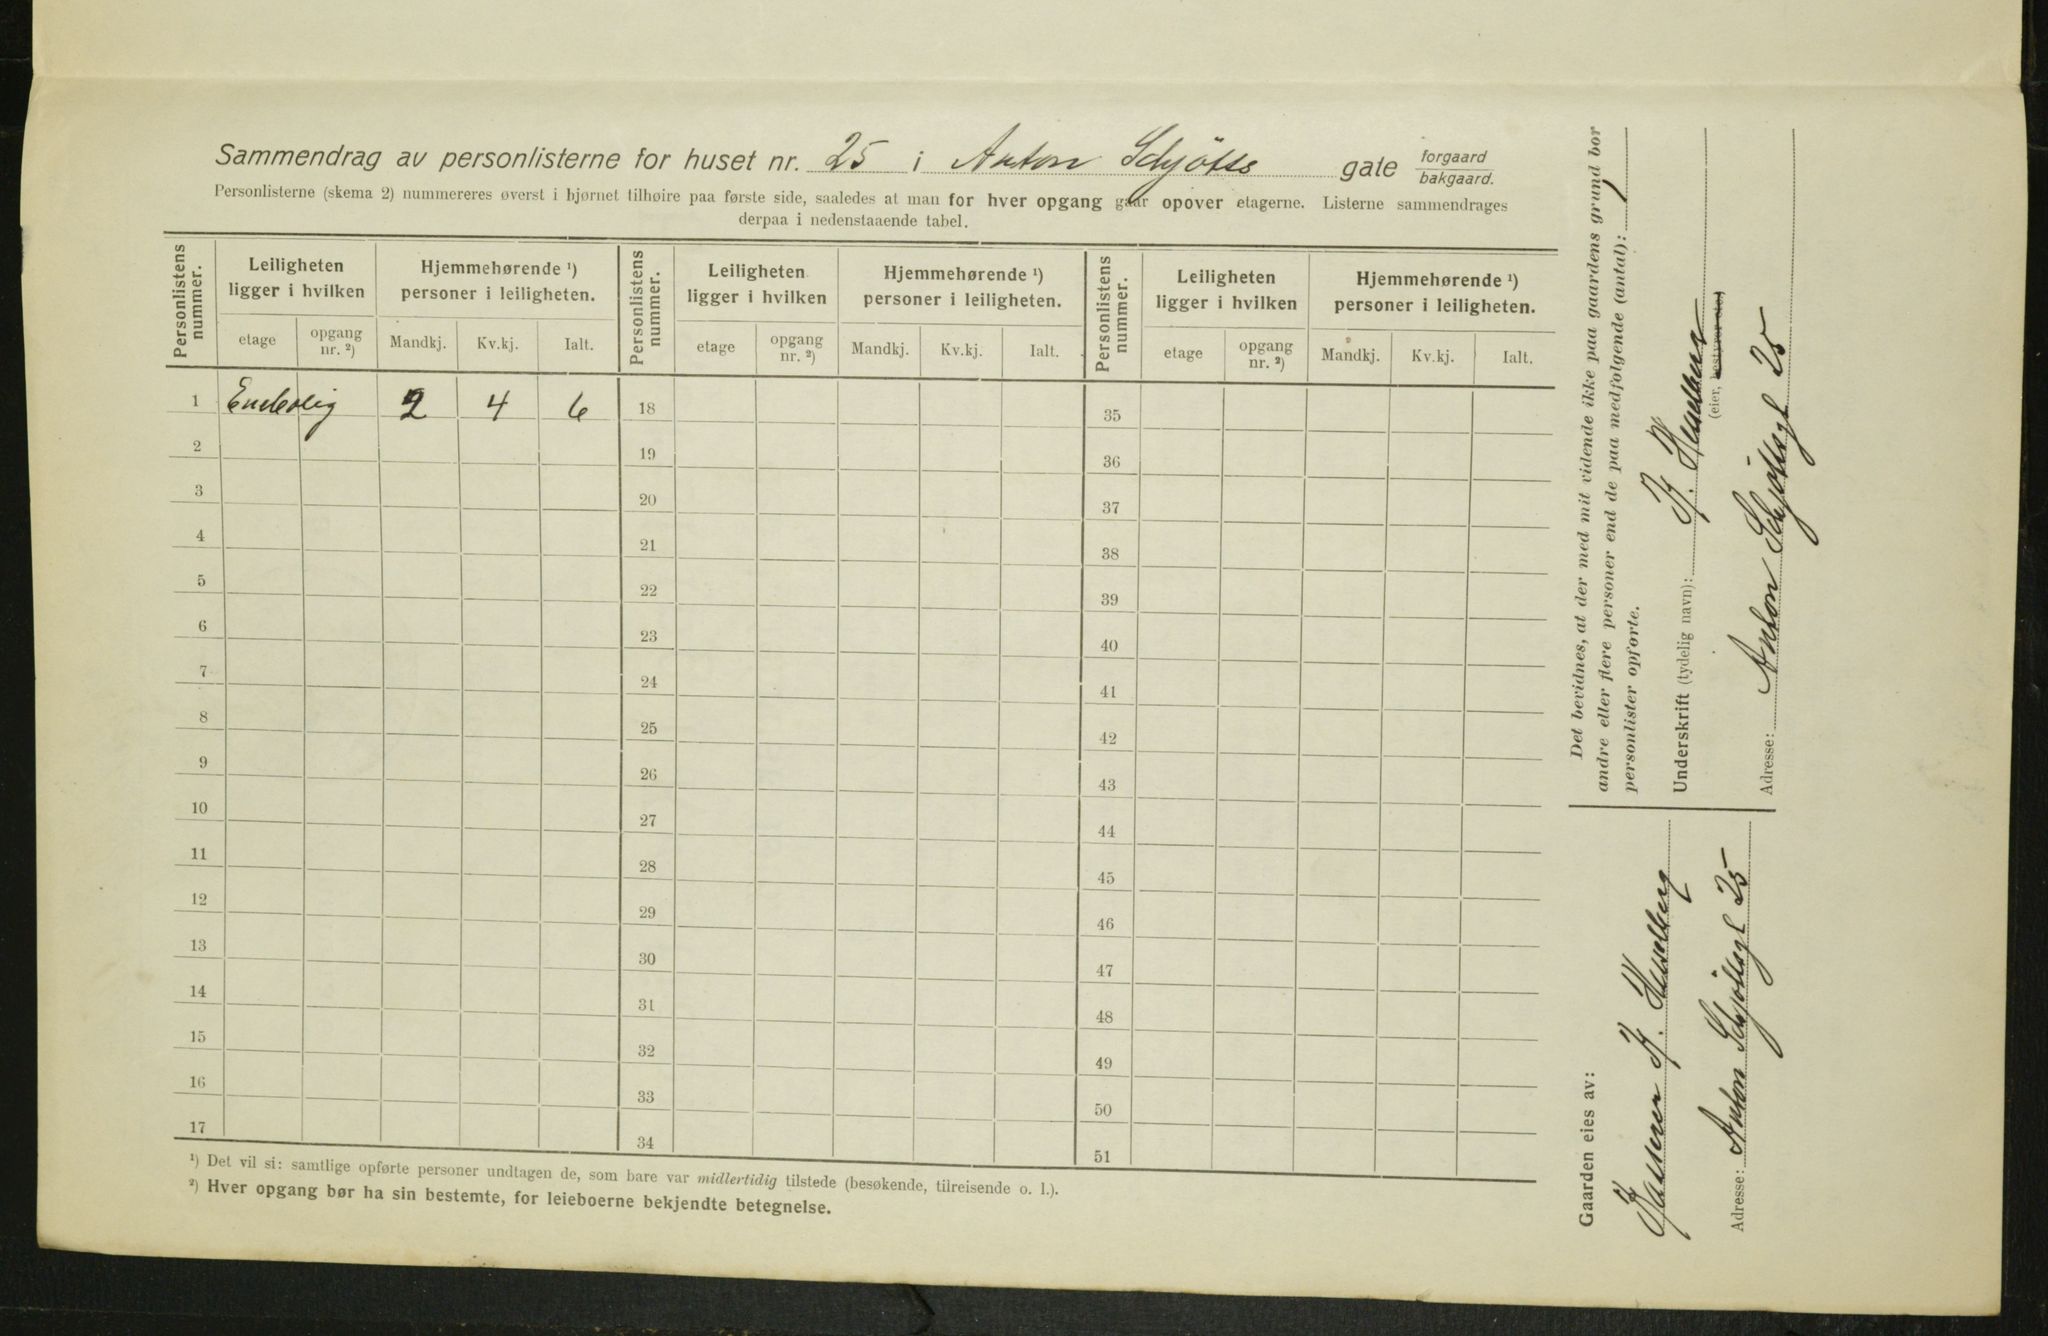 Sammendrag av personlisterne for huset nr. 25 i Anton Schjötts gate forgaard bakgaard.
Personlisterne (skema 2) nummereres øverst i hjørnet tilhøire paa første side, saaledes at man for hver opgang gaar opover etagerne. Listerne sammendrages
derpaa i nedenstaaende tabel.
Personlistens nummer. Leiligheten ligger i hvilken Hjemmehørende ¹) personer i leiligheten. Personlistens nummer. Leiligheten ligger i hvilken Hjemmehørende ¹) personer i leiligheten. Personlistens nummer. Leiligheten ligger i hvilken Hjemmehørende ¹) personer i leiligheten.
etage opgang nr. ²) Mandkj. Kv.kj. Ialt. etage opgang nr. ²) Mandkj. Kv.kj. Ialt. etage opgang nr. ²) Mandkj. Kv.kj. Ialt.
1 Enebolig 2 4 6 18 35
2 19 36
3 20 37
4 21 38
5 22 39
6 23 40
7 24 41
8 25 42
9 26 43
10 27 44
11 28 45
12 29 46
13 30 47
14 31 48
15 32 49
16 33 50
17 34 51
¹) Det vil si: samtlige opførte personer undtagen de, som bare var midlertidig tilstede (besøkende, tilreisende o. l.).
²) Hver opgang bør ha sin bestemte, for leieboerne bekjendte betegnelse.
Gaarden eies av:
K. Hesselberg
Adresse: Anton Schjöttsgt 25
Det bevidnes, at der med mit vidende ikke paa gaardens grund bor
andre eller flere personer end de paa medfølgende (antal): 1
personlister opførte.
Underskrift (tydelig navn):
(eier, bestyrer etc.)
Adresse: Anton Schjöttsgt 25